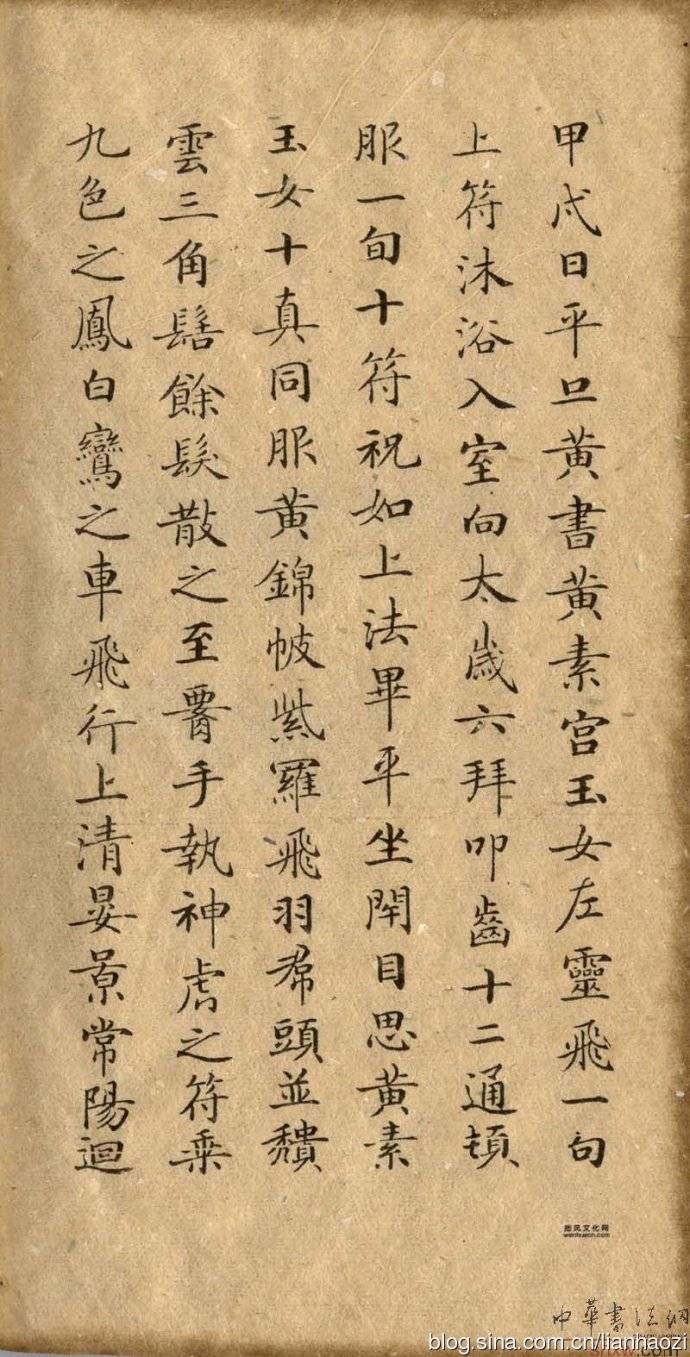 甲戌日平旦黄書黄素宫玉女左靈飛一旬
上符沐浴入室向太歲六拜叩齒十二通頓
服一旬十符祝如上法畢平坐閉目思黄素
玉女十真同服黄錦帔紫羅飛羽帬頭並頽
雲三角髻餘髮散之至腰手執神虎之符乗
九色之鳳白鸞之車飛行上清晏景常陽迴
拙风文化网
中華書法網
blog.sina.com.cn/lianhaozi